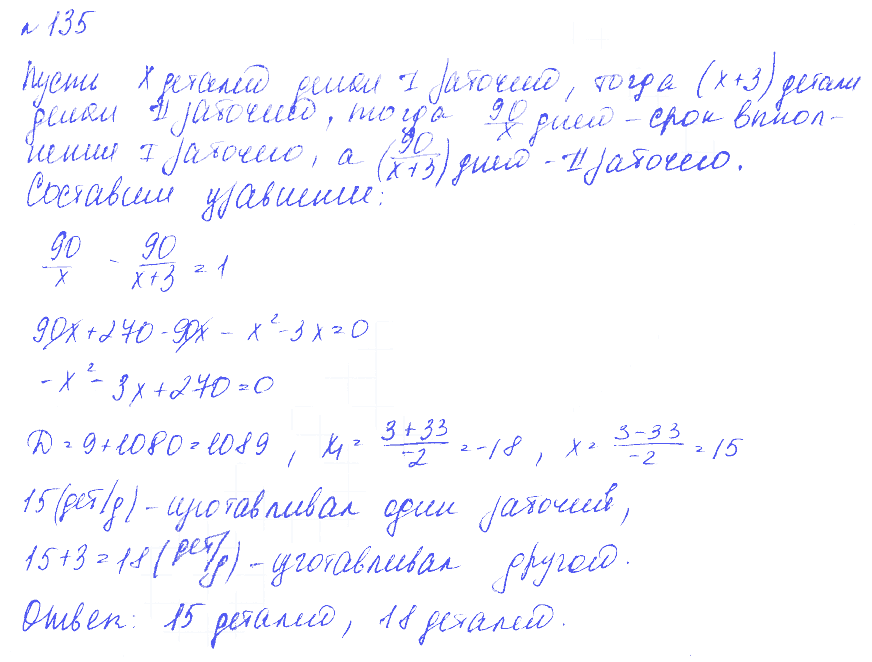 № 135
Пусть x деталей делал I рабочий, тогда (x+3) детали
делал II рабочий, тогда 90/x дней - срок выпол-
нения I рабочего, а (90/(x+3)) дней - II рабочего.
Составим уравнение:
90/x - 90/(x+3) = 1
90x+270-90x-x²-3x=0
-x²-3x+270=0
Д=9+1080=1089, x₁= (3+33)/-2 =-18, x= (3-33)/-2 =15
15(дет/д) - изготавливал один рабочий,
15+3=18(дет/д) - изготавливал другой.
Ответ: 15 деталей, 18 деталей.